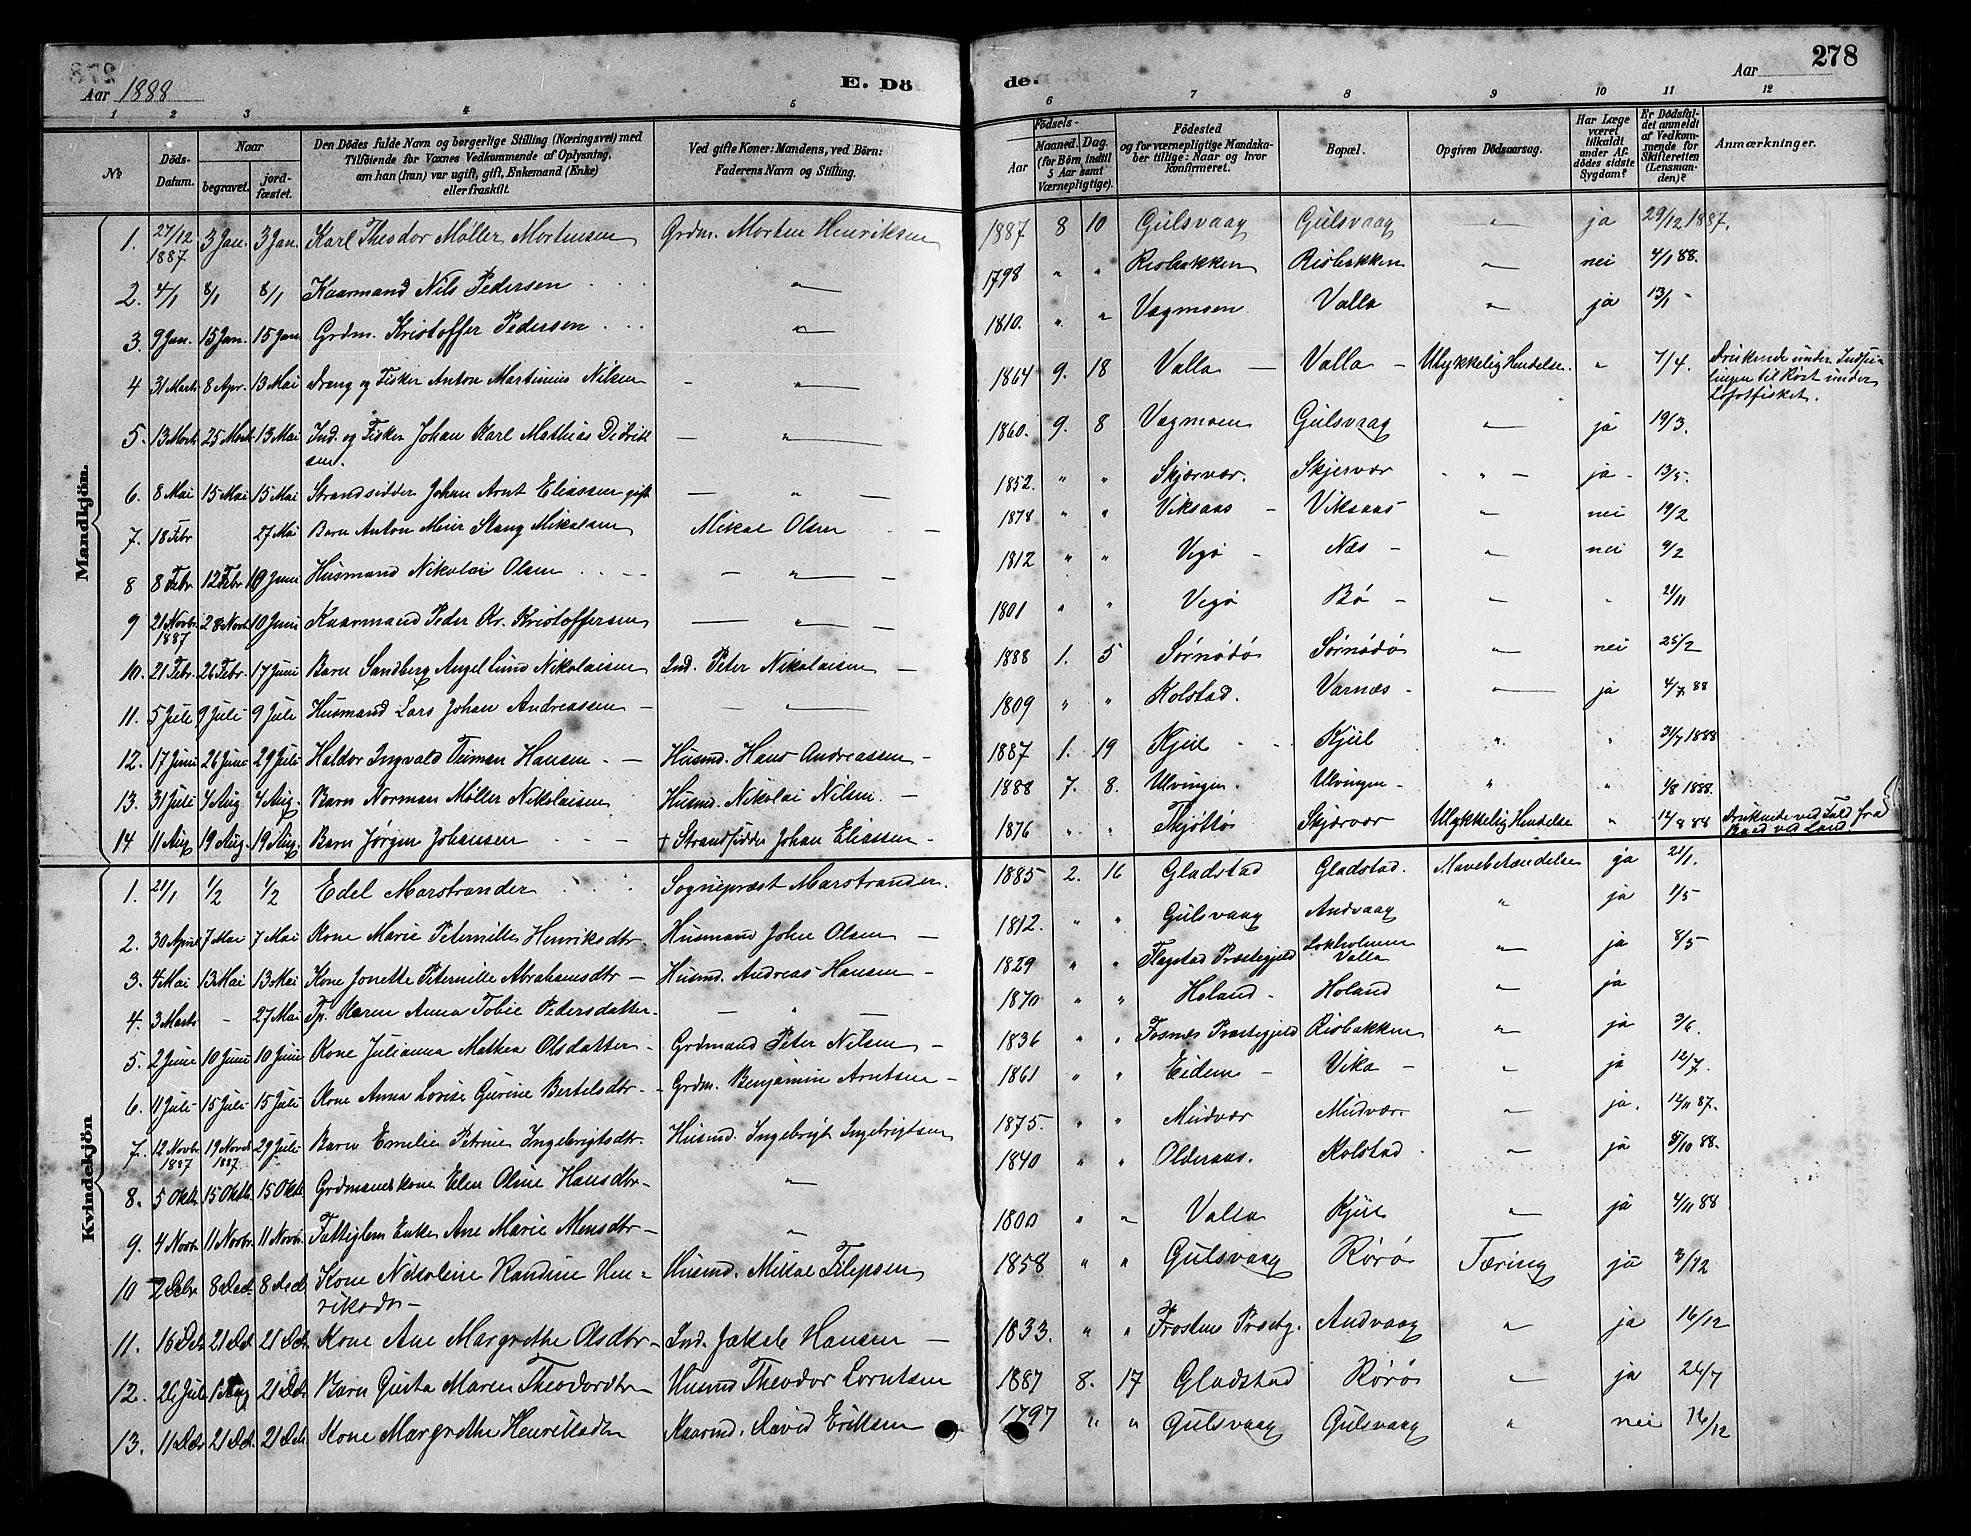 278
Aar 1888
E. Dö
de.
Aar
1 2 3 4 5 6 7 8 9 10 11 12
№
Döds-Datum.
Naar
begravet.
jord-fæstet.
Den Dödes fulde Navn og borgerlige Stilling (Næringsvei) med
Tilföiende for Voxnes Vedkommende af Oplysning,
om han (hun) var ugift, gift, Enkemand (Enke)
eller fraskilt.
Ved gifte Koner: Mandens, ved Börn:
Faderens Navn og Stilling.
Födsels-
Aar
Maaned. Dag.
(for Börn indtil
5 Aar samt
Værnepligtige).
Födested
og for værnepligtige Mandska-
ber tillige: Naar og hvor
konfirmeret.
Bopæl.
Opgiven Dödsaarsag.
Har Læge
været
tilkaldt
under Af-
dödes sidste
Sygdom?
Er Dödsfal-
det anmeldt
af Vedkom-
mende for
Skifteretten
(Lensman-
den)?
Anmærkninger.
Mandkjön.
1. 27/12 1887 3 Jan. 3 Jan. Karl Theodor Møller Mortensen Grdm. Morten Henriksen 1887 8 10 Gulsvaag Gulsvaag " ja 29/12 1887.
2. 4/1 8/1 8/1 Kaarmand Nils Pedersen " 1798 " " Risbakken Risbakken " nei 4/1 88.
3. 9 Jan. 15 Jan. 15 Jan. Grdm. Kristoffer Pedersen " 1810. " " Vagmoen Valla " ja 13/1 -
4 31 Marts 8 Apr. 13 Mai Dreng og Fisker Anton Martinius Nilsen - " 1864 9. 18 Valla - Valla - Ulykkelig Hendelse. " 7/4. Druknede under Indsei-
lingen til Røst under
Lofotfisket.
5. 13 Mart 25 Mart 13 Mai Ind. og Fisker Johan Karl Mathias Didrik
sen. - " 1860. 9. 8 Vagmoen Gulsvaag " ja 19/3.
6. 8 Mai 15 Mai 15 Mai Strandsidder Johan Arnt Eliassen gift - " 1852. " " Skjærvær. Skjervær - " - ja - 13/5.
7. 18 Febr 27 Mai Barn Anton Meier Stang Mikalsen Mikal Olsen - 1878 " " Viksaas - Viksaas - " nei 19/2
8 8 Febr. 12 Febr 10 Juni Husmand Nikolai Olsen - " - 1812 " " Vegø - Næs - " nei 9/2
9 21 Novbr. 1887 28 Novb. 10 Juni Kaarmand Peder Kr. Kristoffersen - " - 1801 " " Vegø Bø - " " 21/11
10. 21 Febr. 26 Febr. 17 Juni Barn Sandberg Angel Lund Nikolaisen Ind. Peter Nikolaisen - 1888 1. 5 Sørnødø Sørnødø " nei 25/2
11. 5 Juli 9 Juli 9 Juli Husmand Lars Johan Andreassen - - " 1809 " " Kolstad. Varnæs - " ja 4/7 88
12. 17 Juni 26 Juni 29 Juli Haldor Ingvald Hansen - Husmd. Hans Andreassen - 1887 1. 19 Kjul Kjul " " 31/7 1888
13. 31 Juli 4 Aug. 4 Aug. Barn Norman Møller Nikolaisen Husmd. Nikolai Nilsen. - 1888 7. 8. Ulvingen. Ulvingen - " " 1/8 1888.
14 11 Aug 19 Aug. 19 Aug. Barn Jørgen Johansen - + Strandsidder Johan Eliassen - 1876 " " Thjøttø Skjærvær Ulykkelig Hendelse " 14/8 88 Druknede ved Fald fra
Baad ved Land
Kvindekjön
1. 21/1 1/2 1/2 Edel Marstrander Sognepræst Marstrander. 1885 2. 16 Gladstad Gladstad. Mavebetændelse ja 21/1.
2. 30 April 7 Mai 7 Mai Kone Marie Peternille Henriksdtr. Husmand John Olsen - 1812. " " Gulsvaag Andvaag " ja 1/5
3. 4 Mai 13 Mai 13 Mai Kone Jonette Peternille Abrahamsdtr - Husmd. Andreas Hansen - 1829 " " Flagstad Præstegjeld Lokholmen
Valla " ja 8/5
4. 3 Marts - 27 Mai Tp. Karen Anna Tobie Pedersdatter - - " - 1870 " " Holand - Holand " ja
5. 2 Juni 10 Juni 10 Juni Kone Julianna Mathea Olsdatter - Grdmand Peter Nilsen - 1836 " " Fosnæs Præstegjeld Risbakken " ja 3/6
6. 11 Juli 15 Juli 15 Juli Kone Anna Lovise Gurine Bertelsdtr - Grdm. Benjamin Arntsen - 1861 " " Eidem - Vika - " ja 12/7.
7. 12 Novbr. 1887 19 Novb. 1887 29 Juli Barn Emelie Petrine Ingebrigtsdtr. Husmd. Ingebrigt Ingebrigtsen 1875. " " Mudvær Mudvær. " ja. 12/11 87.
8. 5 Oktbr. 15 Oktb. 15 Oktb. Grdmandskone Elen Oline Hansdtr - " 1840 " " Olderaas. Kolstad. " ja 5/10 88.
9. 4 Novbr. 11 Novbr. 11 Novbr. Fattiglem Enke Ane Marie Monsdtr - " 1800 " " Valla Kjul " ja 4/11 88
10 2 Debr 8 Ded. 8 Ded. Kone Nikoline Randine Hen-
riksdtr - Husmd. Mikal Filipsen 1858 " " Gulsvaag Rørø Tæring ja 3/12
11. 16 Dec 21 Dec 21 Dec. Kone Ane Margrethe Olsdtr - Ind. Jakob Hansen - 1833. " " Frosten Præstg. Andvaag " ja 16/12
12. 26 Juli 1 Aug 21 Dec Barn Gusta Maren Theodordtr - Husmd Theodor Lorntsen 1887 8. 17 Gladstad Rørø " ja 26/7
13. 11 Dec 21 Dec. 21 Dec Kone Margrethe Henriksdtr Kaarmd. David Eriksen 1797 " " Gulsvaag Gulsvaag " nei 16/12